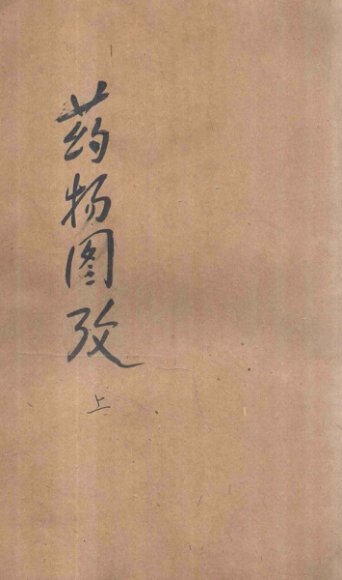 药物图攷
上